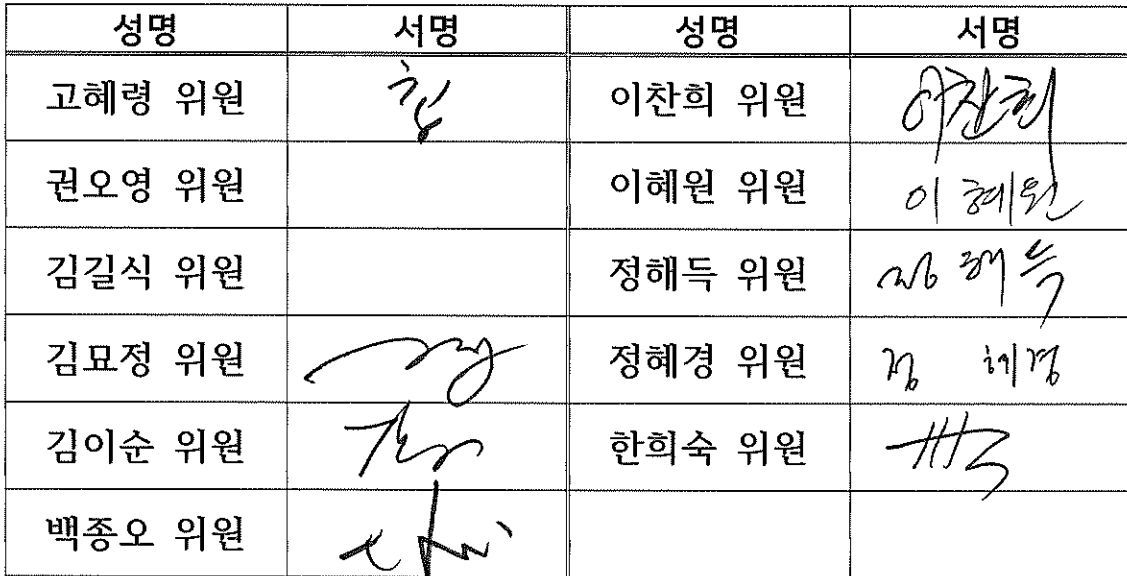 성명 서명 성명 서명
고혜령 위원 이찬희 위원 이찬희
권오영 위원 이혜원 위원 이혜원
김길식 위원 정해득 위원 정해득
김묘정 위원 정혜경 위원 정 혜경
김이순 위원 한희숙 위원
백종오 위원